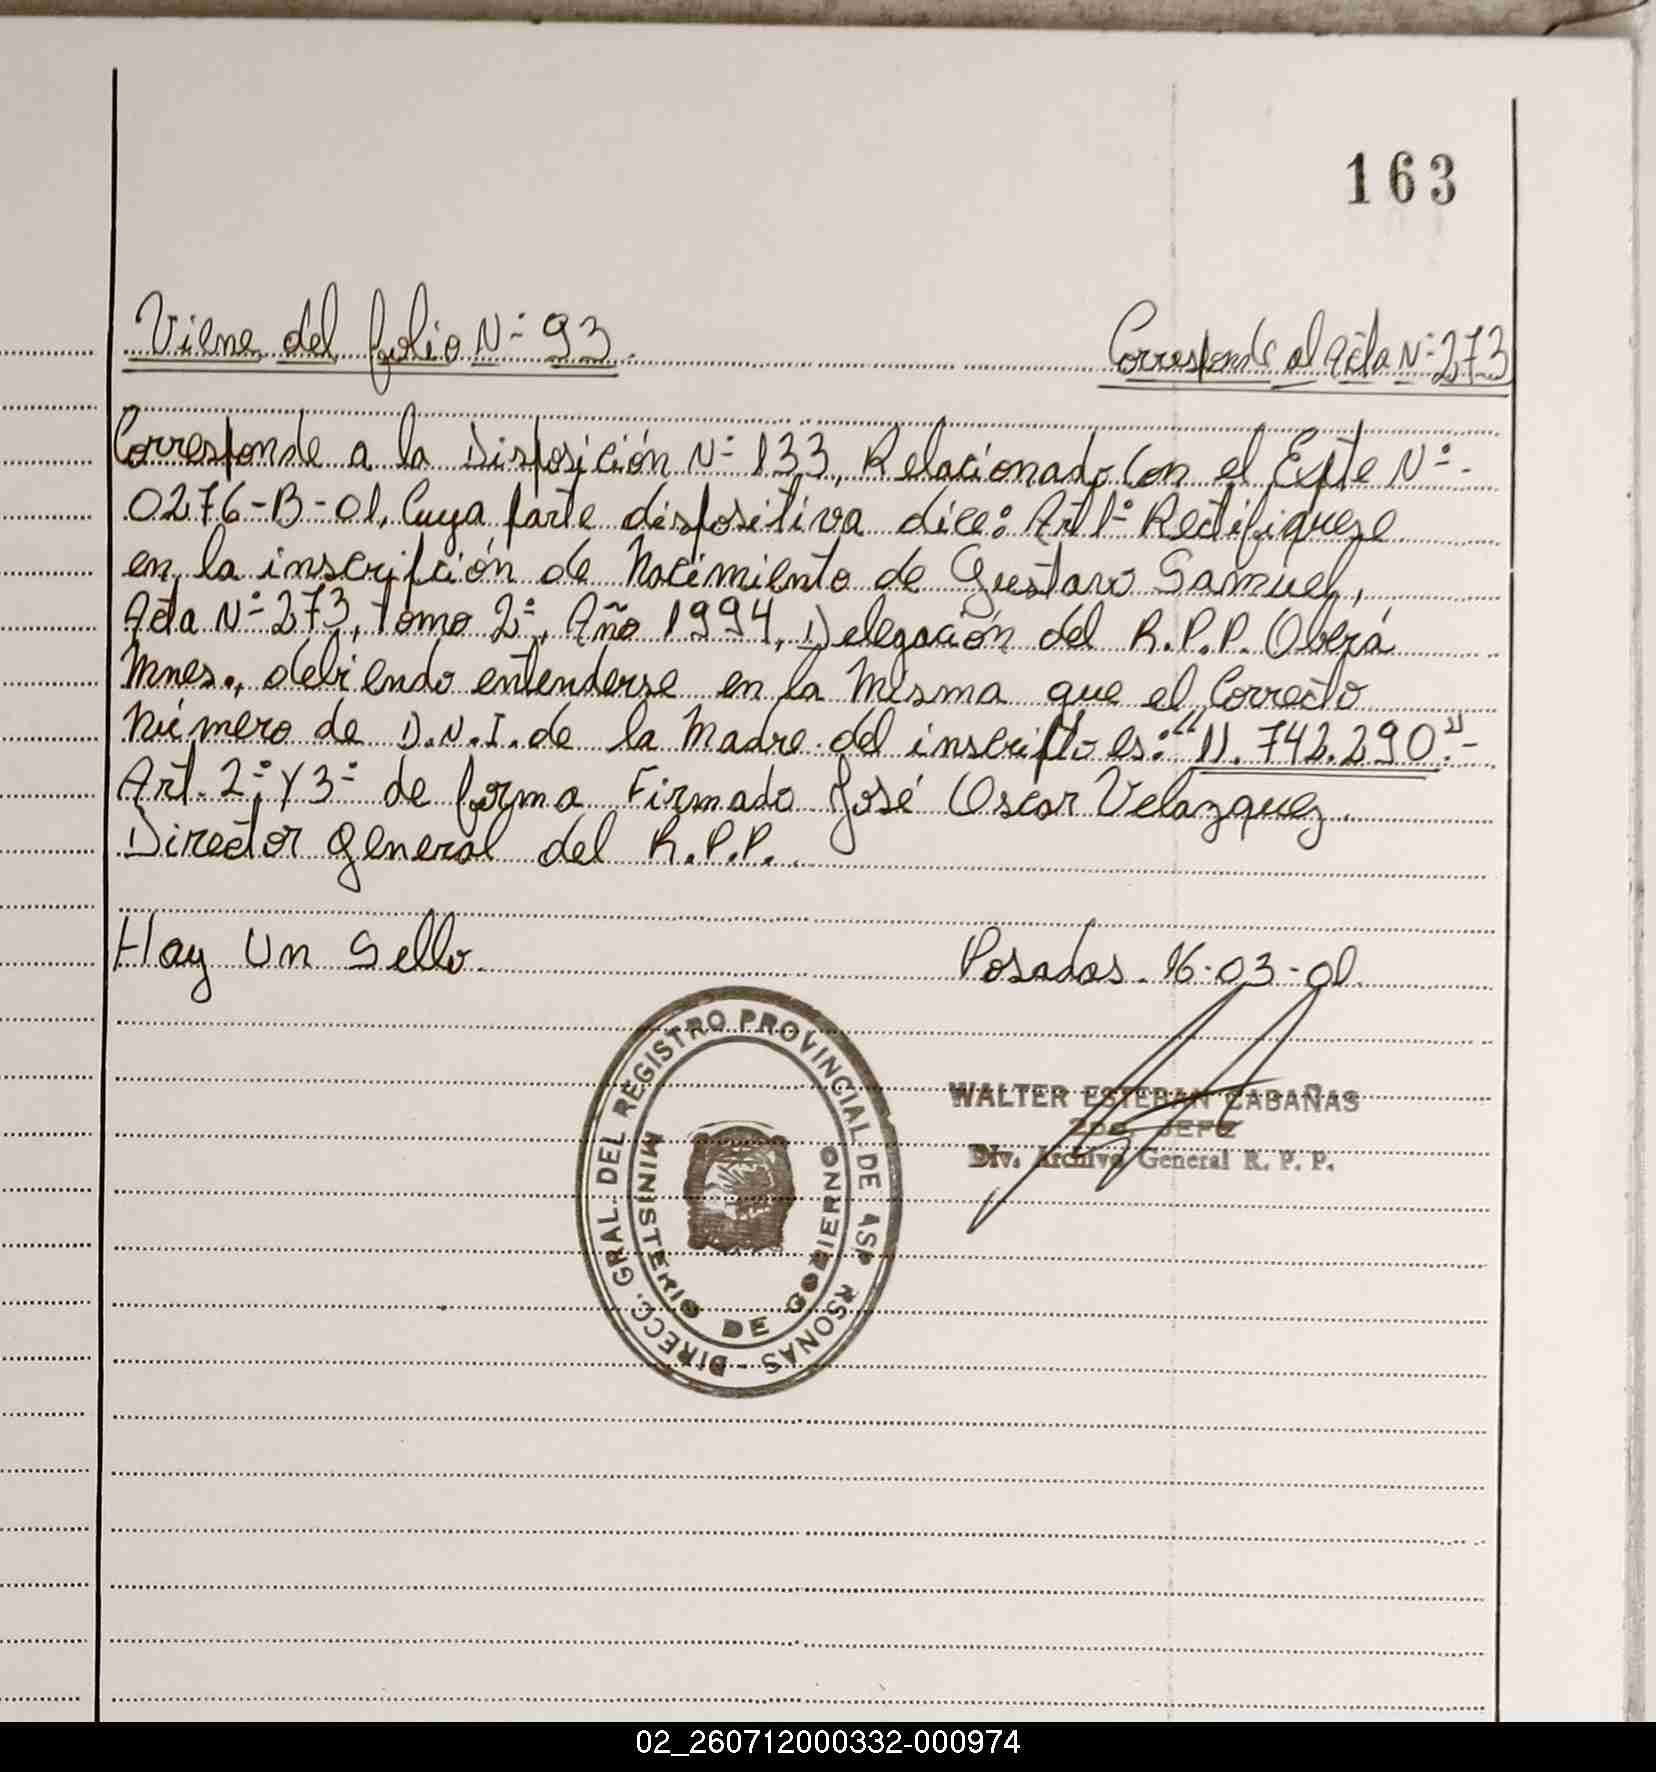 163
Viene del folio Nº 93. Corresponde al Acta Nº 273
Corresponde a la Disposición Nº 133, Relacionado Con el Expte Nº-
0276-B-01, Cuya parte dispositiva dice: Art 1º Rectifiquese
en la inscripción de Nacimiento de Gustavo Samuel,
Acta Nº 273, Tomo 2º, Año 1994, Delegación del R.P.P. Oberá
Mnes., debiendo entenderse en la misma que el Correcto
Número de D.N.I. de la Madre del inscripto es: "11.742.290".-
Art. 2º y 3º de forma Firmado José Oscar Velazquez.
Director General del R.P.P.
Hay Un Sello. Posadas. 16-03-01.
DIRECC. GRAL. DEL REGISTRO PROVINCIAL DE
RSONAS
MINISTERIO DE GOBIERNO
WALTER ESTEBAN CABAÑAS
2do JEFE
Div. Archivo General R. P. P.
02_260712000332-000974